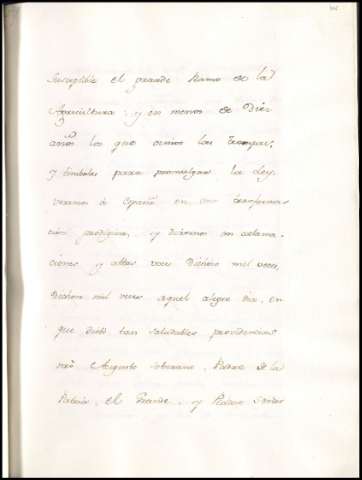 susceptible el grande Ramo de la
Agricultura y en menos de Diez
años los que oimos las trompas,
y timbales para promulgar la Ley
veamos á España en una transforma
ción prodigiosa, y diremos en aclama
ciones y altas voces Dichoso mil veces,
Dichoso mil veces aquel alegre dia, en
que dictó tan saludables providencias
nrõ Augusto soberano, Padre de la
Patria, el Grande, y Piadoso Señor